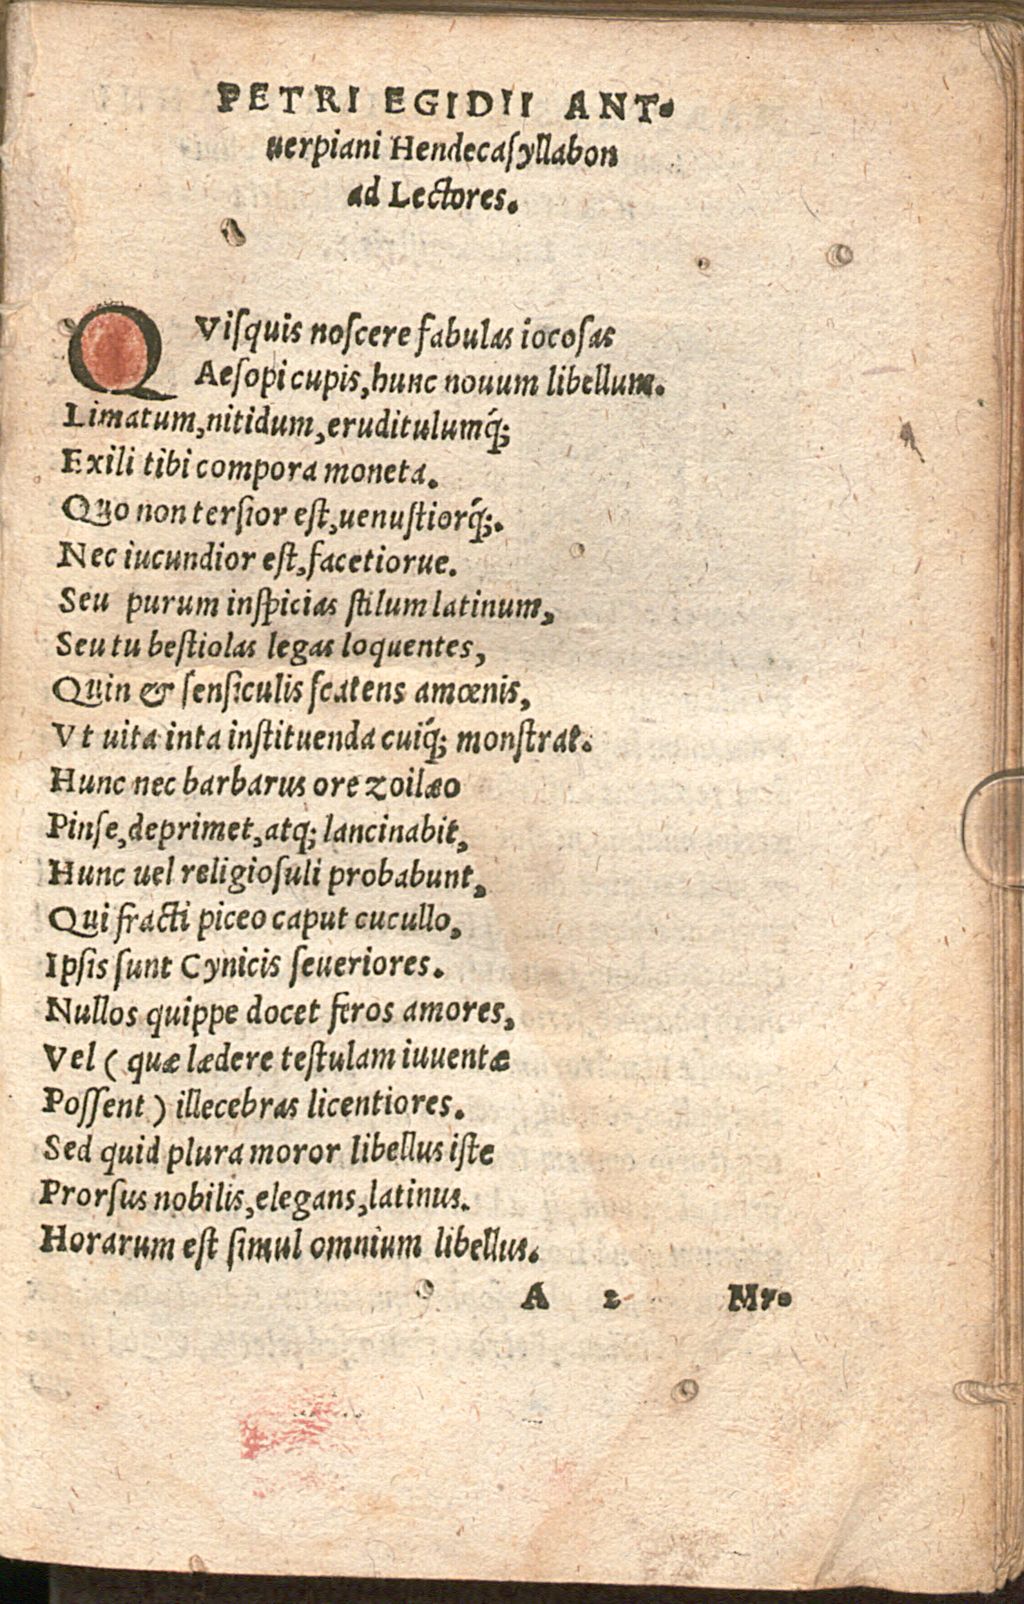 PETRI EGIDII ANT-
uerpiani Hendecaſyllabon
ad Lectores.
QViſquis noſcere fabulas iocoſas
Aeſopi cupis, hunc nouum libellum.
Limatum, nitidum, eruditulumq́;
Exili tibi compora moneta.
Quo non terſior eſt, uenuſtiorq́;.
Nec iucundior eſt, facetiorue.
Seu purum inſpicias ſtilum latinum,
Seu tu beſtiolas legas loquentes,
Quin & ſenſiculis ſcatens amœnis,
Vt uita inta inſtituenda cuiq́; monſtrat.
Hunc nec barbarus ore zoilæo
Pinſe, deprimet, atq; lancinabit,
Hunc uel religioſuli probabunt,
Qui fracti piceo caput cucullo,
Ipſis ſunt Cynicis ſeueriores.
Nullos quippe docet feros amores,
Vel ( quæ lædere teſtulam iuuentæ
Poſſent ) illecebras licentiores.
Sed quid plura moror libellus iſte
Prorſus nobilis, elegans, latinus.
Horarum eſt ſimul omnium libellus.
A 2 My-